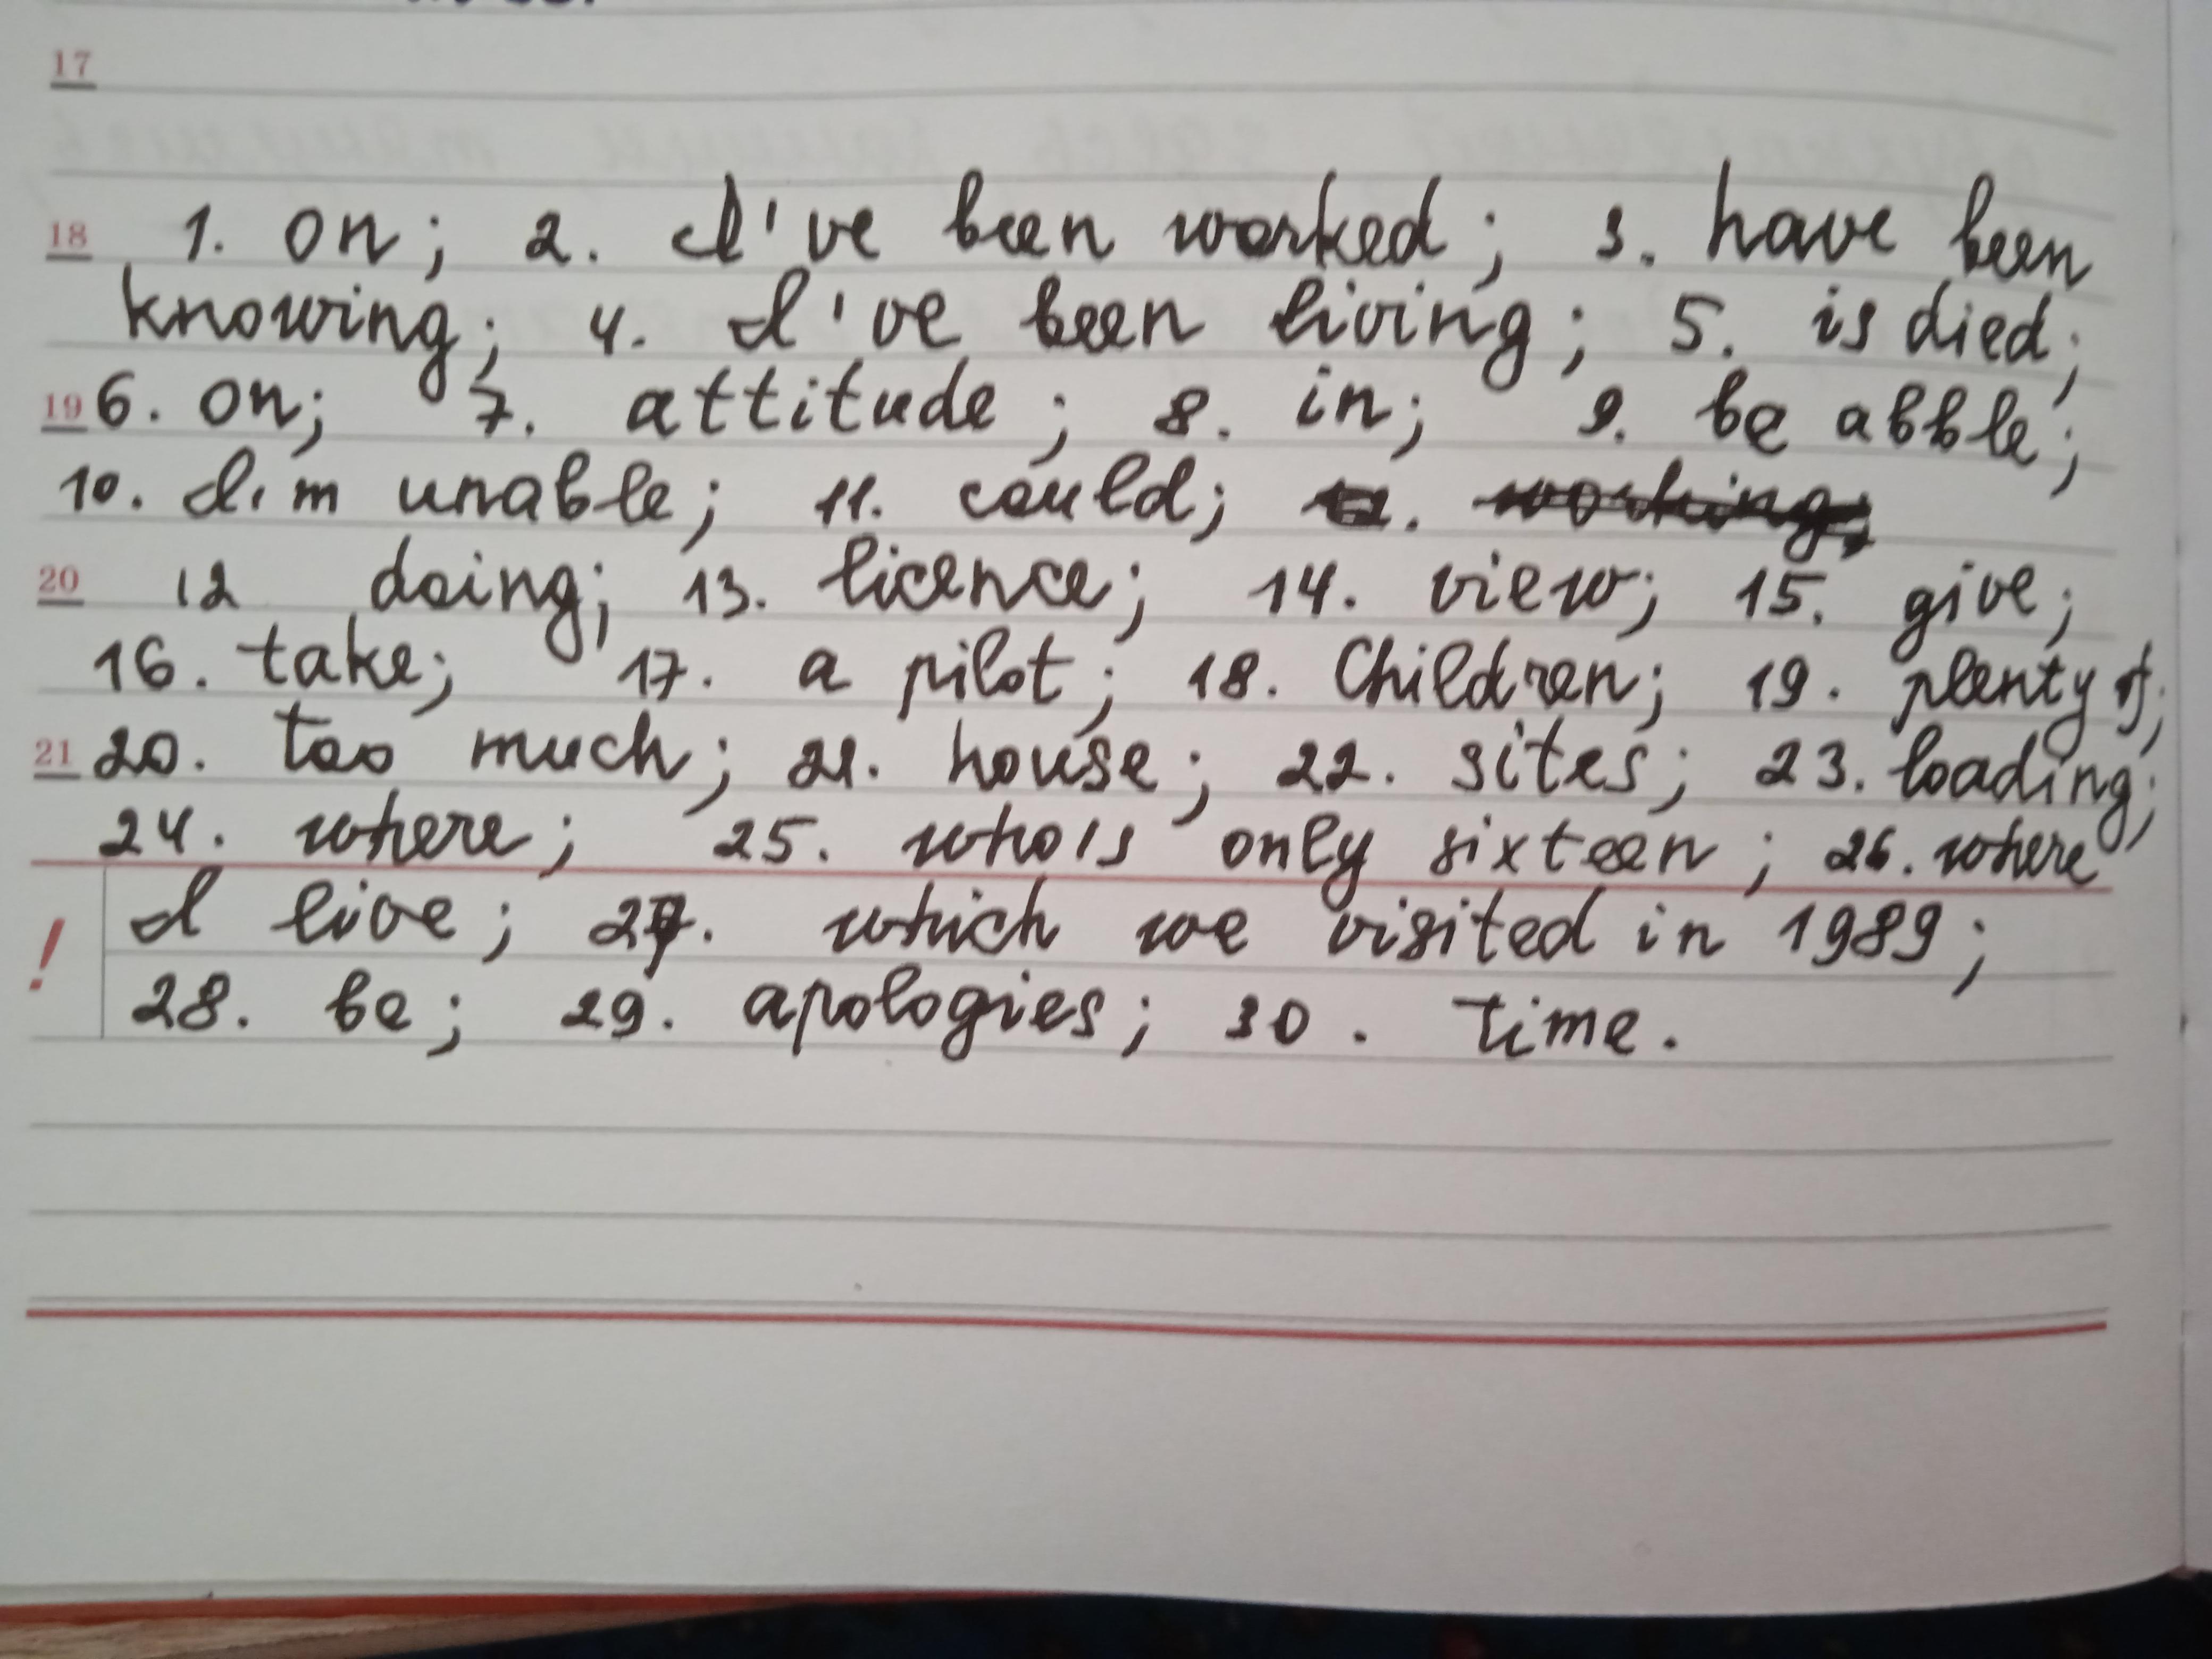 17
18 1. on; 2. I've been worked; 3. have been
knowing; 4. I've been living; 5. is died;
19 6. on; 7. attitude; 8. in; 9. be abble;
10. I'm unable; 11. could;
20 12 doing; 13. licence; 14. view; 15. give;
16. take; 17. a pilot; 18. Children; 19. plenty of;
21 20. too much; 21. house; 22. sites; 23. loading;
24. where; 25. who is only sixteen; 26. where
! I live; 27. which we visited in 1989;
28. be; 29. apologies; 30. time.